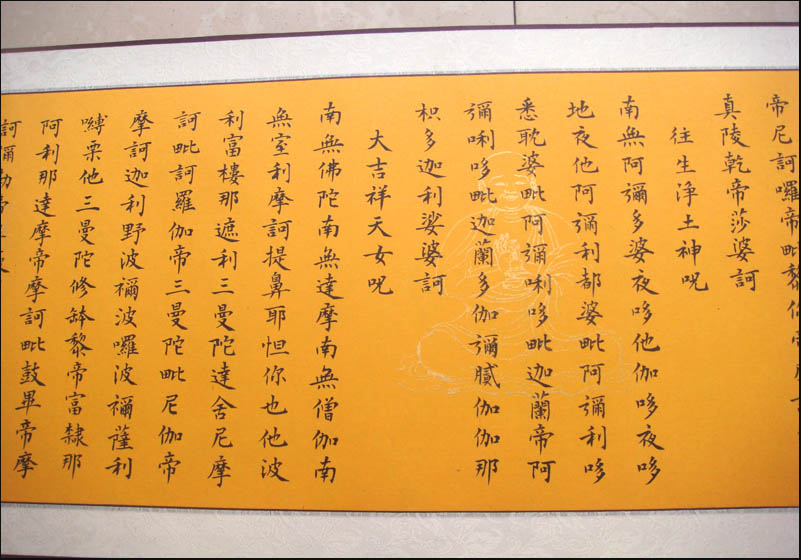 帝尼訶囉帝毗黎你
真陵乾帝莎婆訶
往生淨土神呪
南無阿彌多婆夜哆他伽哆夜哆
地夜他阿彌利都婆毗阿彌利哆
悉耽婆毗阿彌唎哆毗迦蘭帝阿
彌唎哆毗迦蘭多伽彌膩伽伽那
枳多迦利娑婆訶
大吉祥天女呪
南無佛陀南無達摩南無僧伽南
無室利摩訶提鼻耶怛你也他波
利富樓那遮利三曼陀達舍尼摩
訶毗訶羅伽帝三曼陀毗尼伽帝
摩訶迦利野波禰波囉波禰薩利
嚩栗他三曼陀修缽黎帝富隸那
阿利那達摩帝摩訶毗鼓畢帝摩
訶彌勒帝